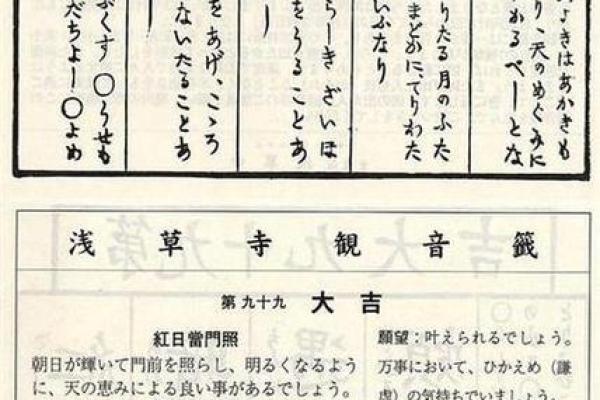 よきはあかきも
り、天のめぐみに
かるべしとな
りたる月のふた
まどかに、てりわた
いふなり
らしきざいほ
をうることあ
し
をあげ、こゝろ
ないたることあ
し
ぶくす 〇うせも
だちよし〇よめ
浅草寺観音籤
第九十九 大吉
紅日當門照
朝日が輝いて門前を照らし、明るくなるよう
に、天の恵みによる良い事があるでしょう。
願望：叶えられるでしょう。
万事において、ひかえめ（謙
虚）の気持ちでいましょう。